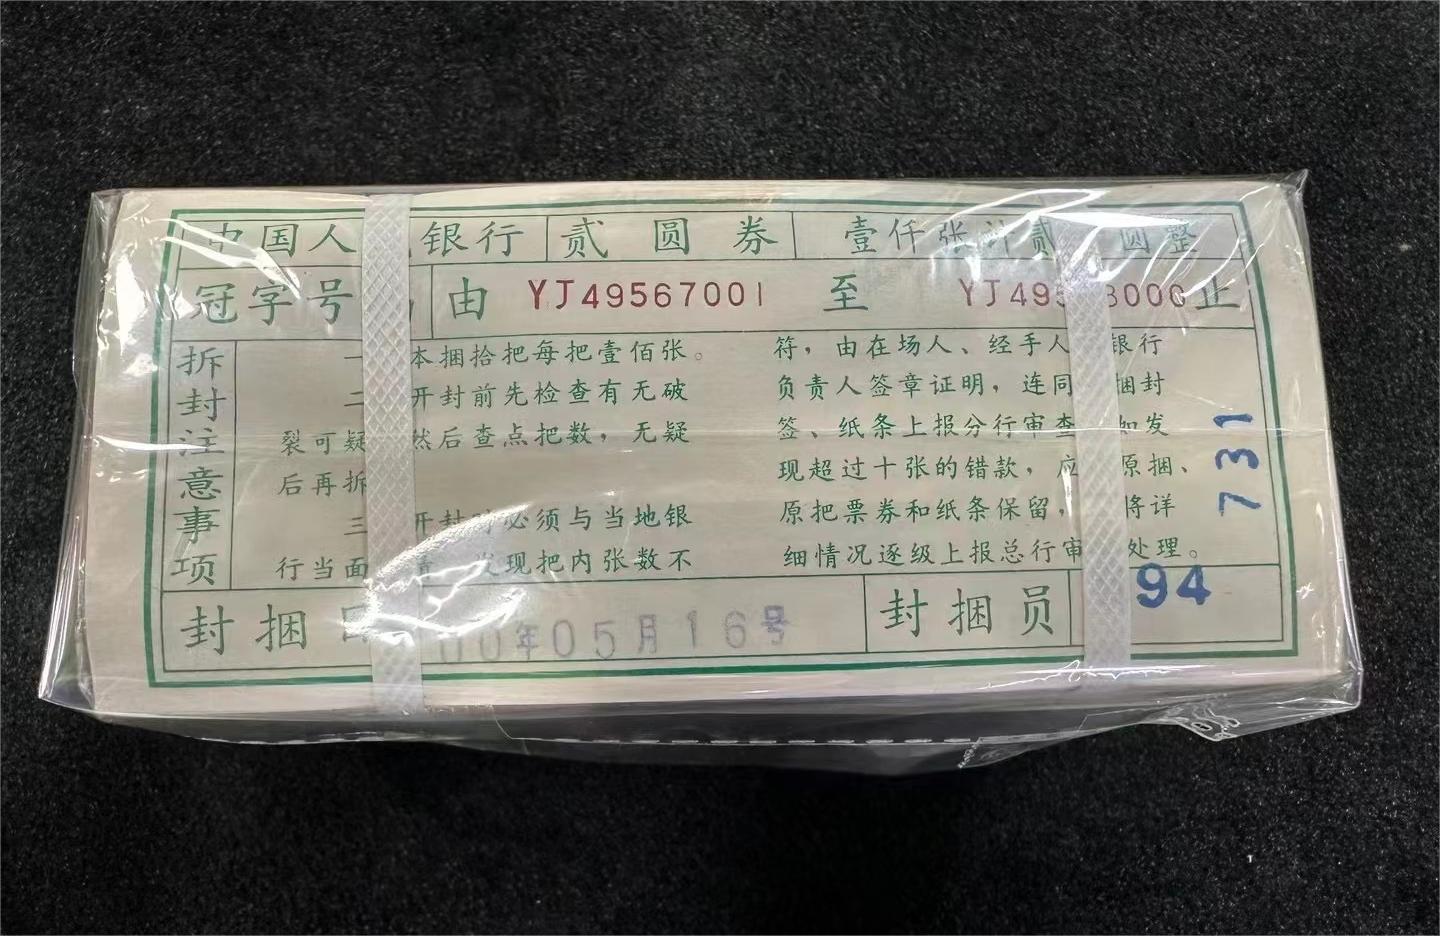 中国人 银行 贰圆券 壹仟张计贰 圆整
冠字号 由 YJ49567001 至 YJ495 8000 止
拆封注意事项
一 本捆拾把每把壹佰张。
二 开封前先检查有无破
裂可疑 然后查点把数，无疑
后再拆
三 开封时必须与当地银
行当面 发现把内张数不
符，由在场人、经手人 银行
负责人签章证明，连同 捆封
签、纸条上报分行审查 如发
现超过十张的错款，应 原捆、
原把票券和纸条保留， 将详
细情况逐级上报总行审 处理。
731
封捆日 00年05月16号 封捆员 94